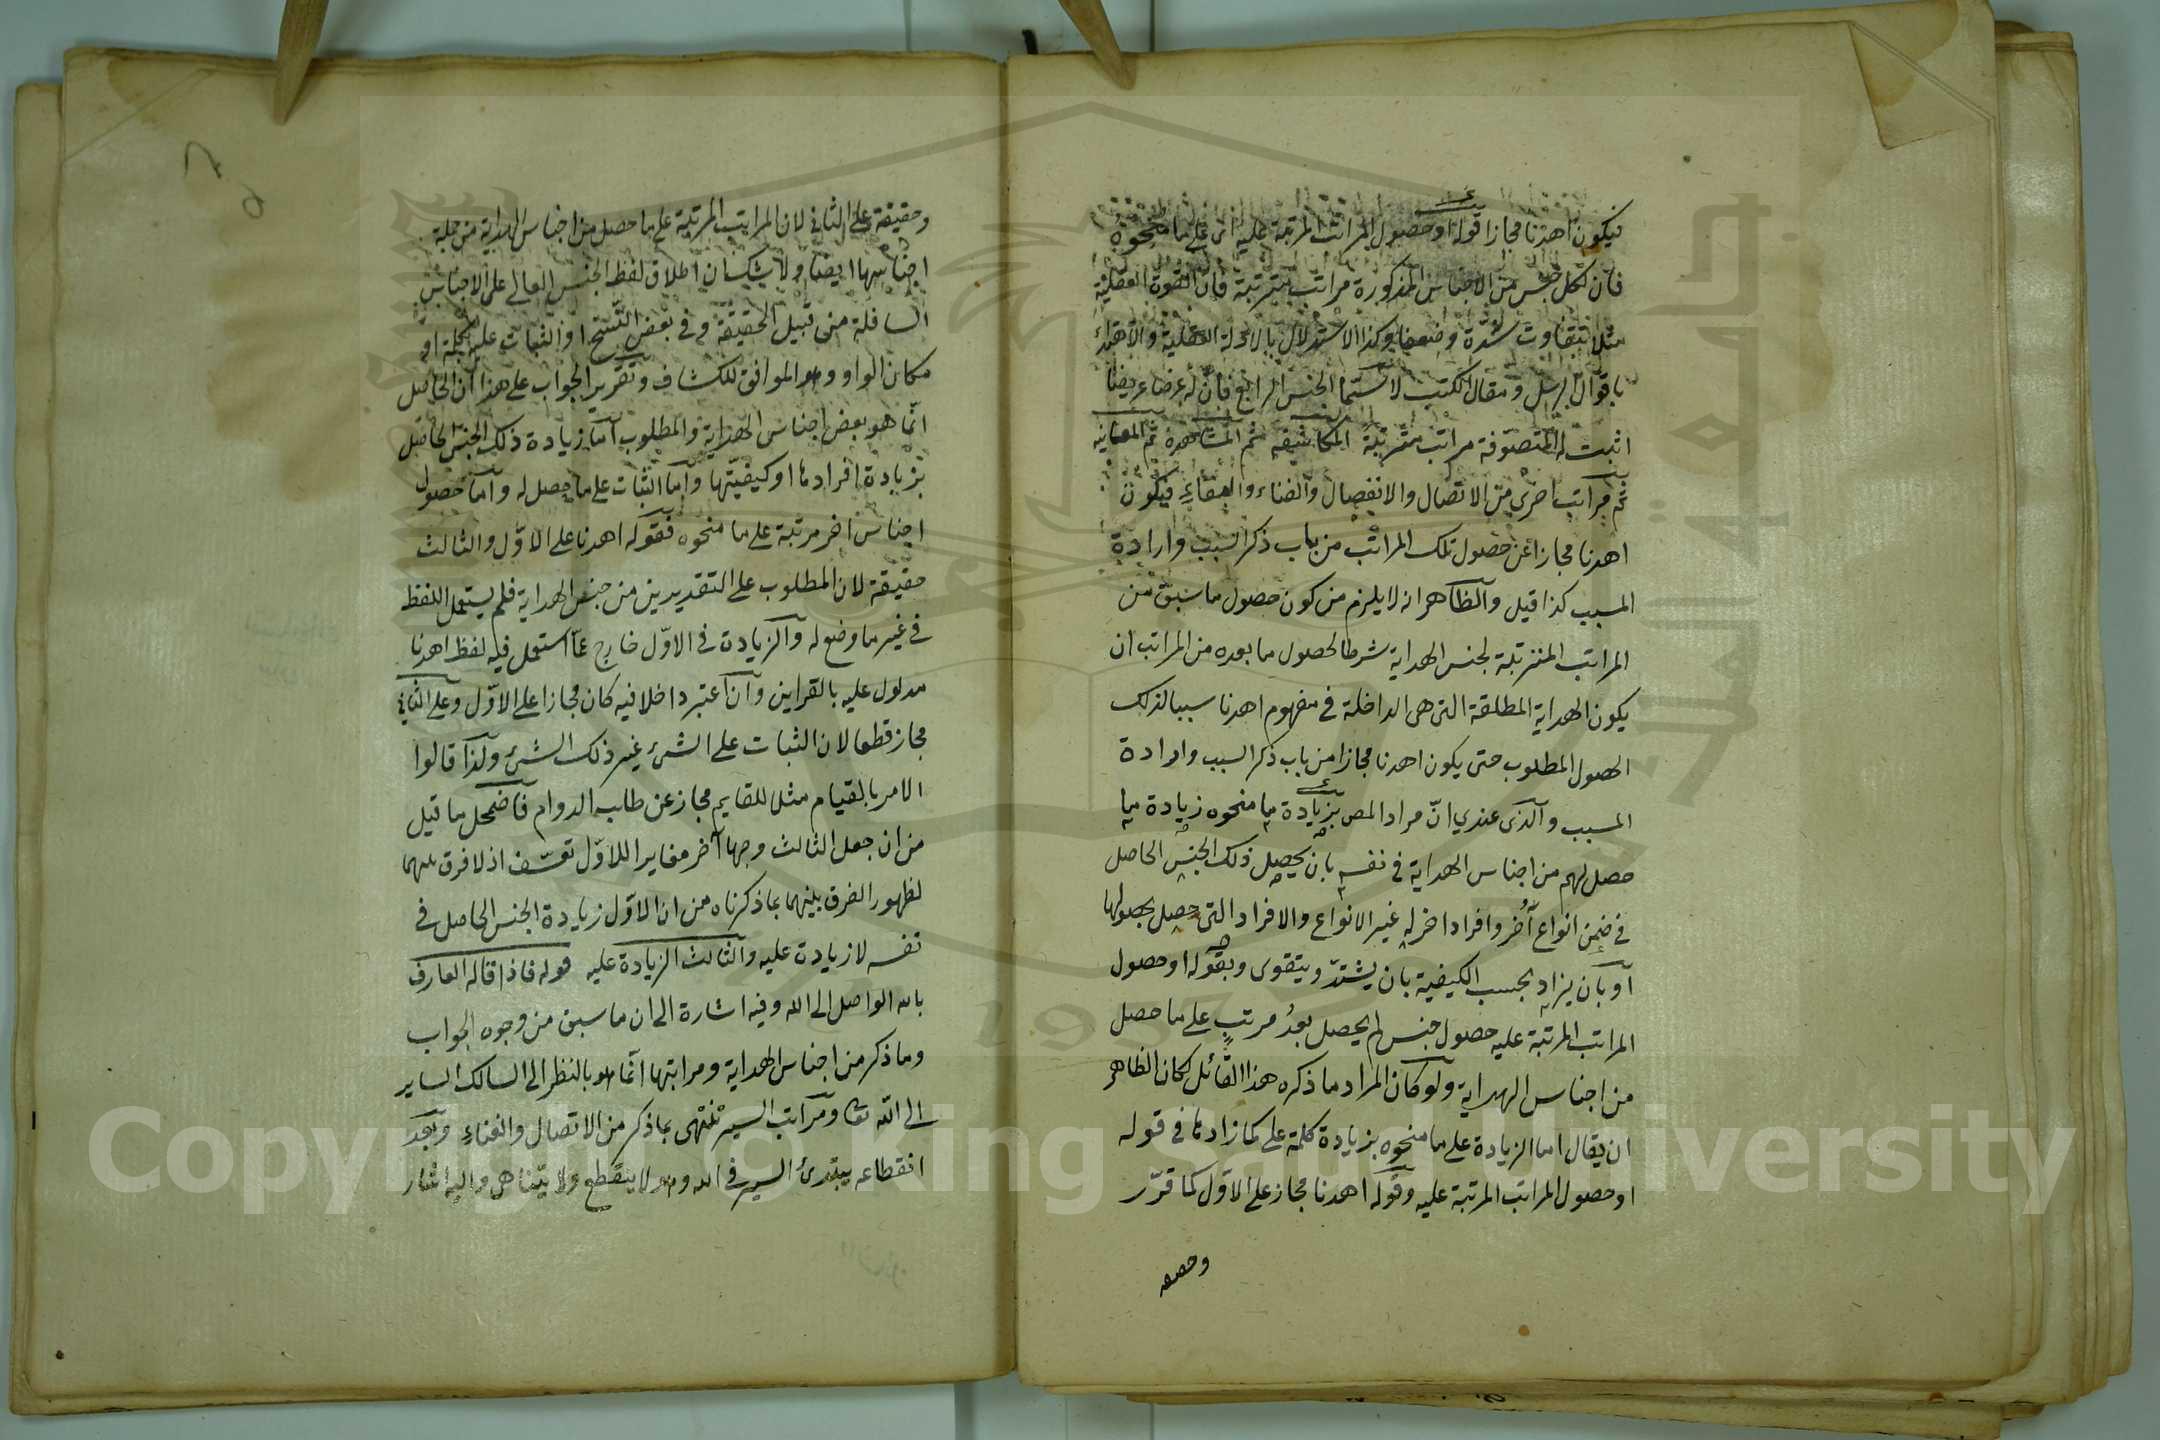 فيكون اهدنا مجازا قوله او حصول المراتب المرتبة عليه اى على ما منحوه
فان لكل جنس من الاجناس المذكورة مراتب مترتبة فان القوة العقلية
مثلا تتفاوت شدة وضعفا وكذا الاستدلال بالادلة العقلية والاهتداء
باقوال الرسل ومقال الكتب لا سيما الجنس الرابع فان له عرضا عريضا
اثبت له المتصوفة مراتب مترتبة المكاشفه ثم المشاهدة ثم المعاينه
ثم مراتب اخرى من الاتصال والانفصال والفناء والبقاء فيكون
اهدنا مجازا عن حصول تلك المراتب من باب ذكر السبب وارادة
المسبب كذا قيل والظاهر انه لا يلزم من كون حصول ما سبق من
المراتب المترتبة لجنس الهداية شرطا لحصول ما بعده من المراتب ان
يكون الهداية المطلقة التى هى الداخلة فى مفهوم اهدنا سببا لذلك
الحصول المطلوب حتى يكون اهدنا مجازا من باب ذكر السبب وارادة
المسبب والذى عندي انّ مراد المص بزيادة ما منحوه زيادة ما
حصل لهم من اجناس الهداية فى نفسه بان يحصل ذلك الجنس الحاصل
فى ضمن انواع أخر وافراد اخر له غير الانواع والافراد التى حصل بحصولها
او بان يزاد بحسب الكيفية بان يشتدّ ويتقوى وبقوله او حصول
المراتب المرتبة عليه حصول جنس لم يحصل بعدُ مرتب على ما حصل
من اجناس الهداية ولو كان المراد ما ذكره هذا القائل لكان الظاهر
ان يقال اما الزيادة على ما منحوه بزيادة كلمة على كما زادها فى قوله
او حصول المراتب المرتبة عليه وقوله اهدنا مجاز على الاوّل كما قرّر
وحصه
وحقيقة على الثانى لان المراتب المرتبة على ما حصل من اجناس الهداية من جملة
اجناسها ايضا ولا شك ان اطلاق لفظ الجنس العالى على الاجناس
السافلة من قبيل الحقيقة وفى بعض النسخ او الثبات عليه بكلمة او
مكان الواو وهو الموافق للكشاف وتقرير الجواب على هذا ان الحاصل
انّما هو بعض اجناس الهداية والمطلوب اما زيادة ذلك الجنس الحاصل
بزيادة افرادها او كيفيّتها واما الثبات على ما حصل له واما حصول
اجناس اخر مرتبة على ما منحوه فقوله اهدنا على الاوّل والثالث
حقيقة لان المطلوب على التقديرين من جنس الهداية فلم يستعمل اللفظ
فى غير ما وضع له والزيادة فى الاوّل خارج عما استعمل فيه لفظ اهدنا
مدلول عليه بالقراين وان اعتبر داخلا فيه كان مجازا على الاوّل وعلى الثانى
مجاز قطعا لان الثبات على الشئ غير ذلك الشئ ولذا قالوا
الامر بالقيام مثلا للقايم مجاز عن طلب الدوام فاضمحل ما قيل
من ان جعل الثالث وجها آخر مغايرا للاوّل تعسّف اذ لا فرق بينهما
لظهور الفرق بينهما بما ذكرناه من ان الاوّل زيادة الجنس الحاصل فى
نفسه لا زيادة عليه والثالث الزيادة عليه قوله فاذا قاله العارف
بالله الواصل الى الله وفيه اشارة الى ان ما سبق من وجوه الجواب
وما ذكر من اجناس الهداية ومراتبها انّما هو بالنظر الى السالك الساير
الى الله تعا ومراتب السير تنتهى بما ذكر من الاتصال والفناء وبعد
انقطاعه يبتدئ السير فى الله وهو لا ينقطع ولا يتناهى واليه اشار
Copyright © King Saud University
1957